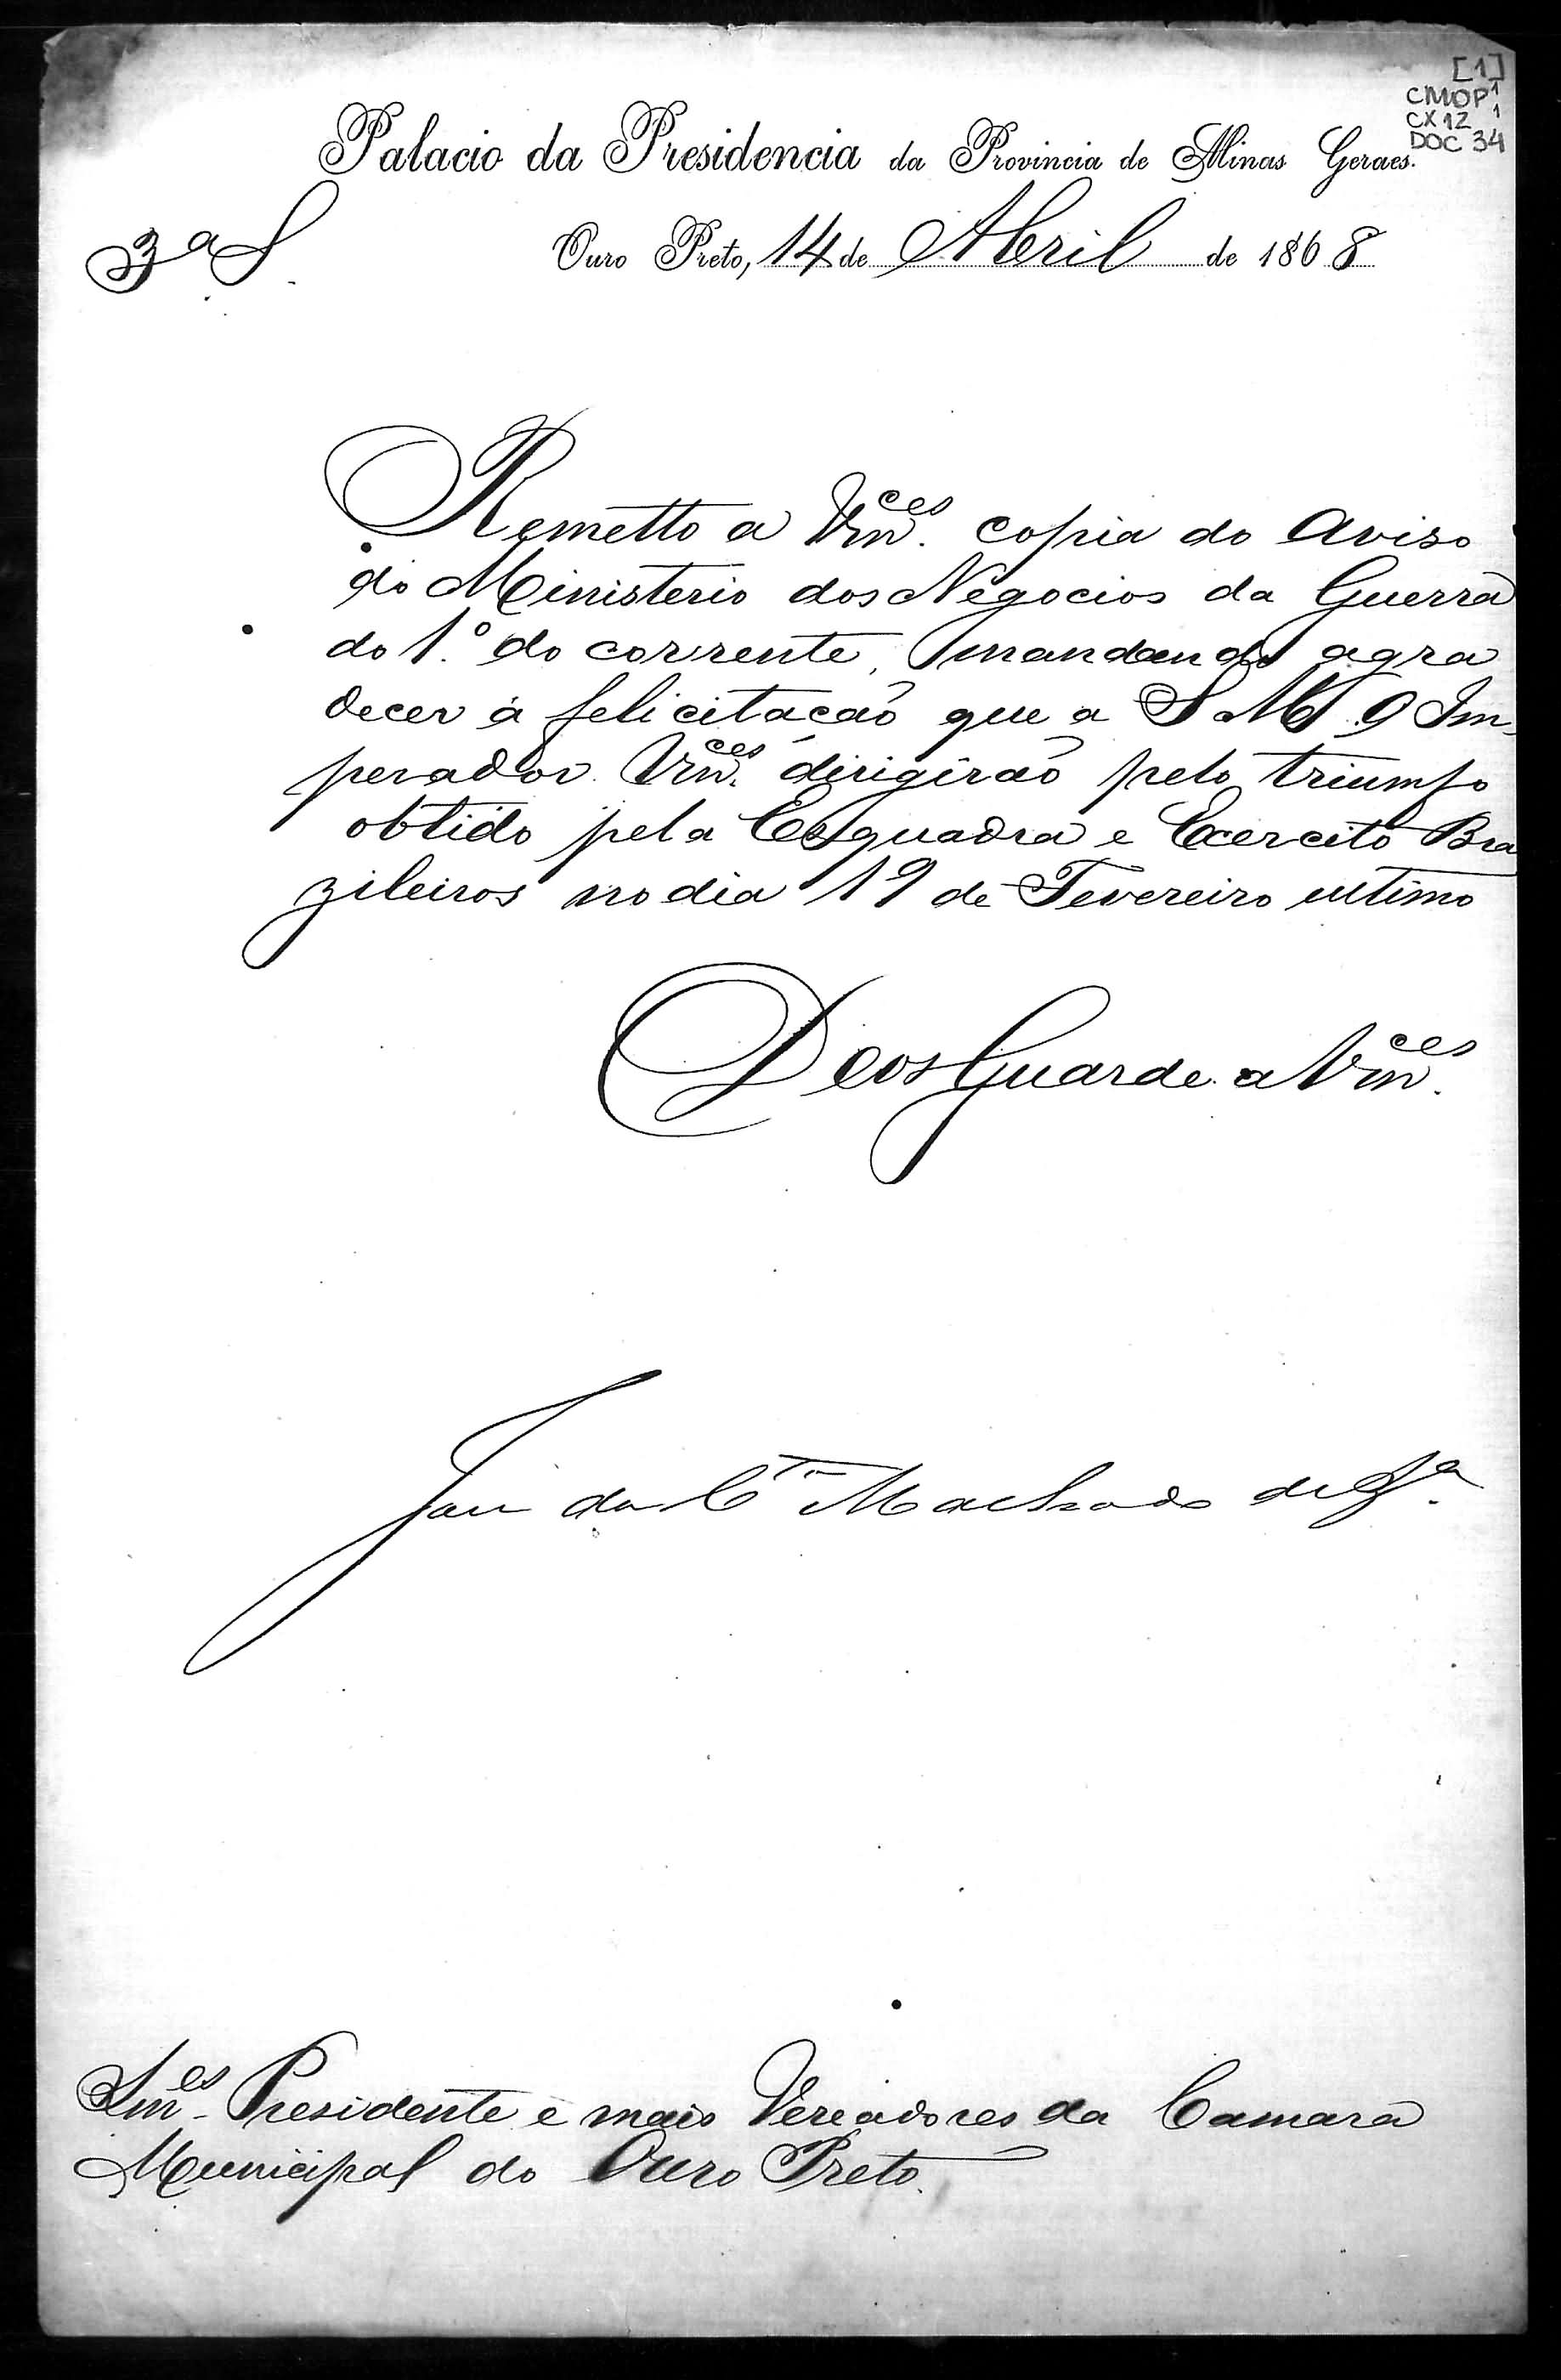 [1]
CMOP 1
CX 12 1
DOC 34
Palacio da Presidencia da Provincia de Minas Geraes.
3ª S
Ouro Preto, 14 de Abril de 1868
Remetto a Vm.ces copia do Aviso
do Ministerio dos Negocios da Guerra
do 1.º do corrente, mandando agra
decer a felicitação que a S M O Im
perador Vm.ces dirigirão pelo triumfo
obtido pela Esquadra e Exercito Bra
zileiros no dia 19 de Fevereiro ultimo
Deos Guarde a Vm.ces
José da Machado de
Snres Presidente e mais Vereadores da Camara
Municipal do Ouro Preto.